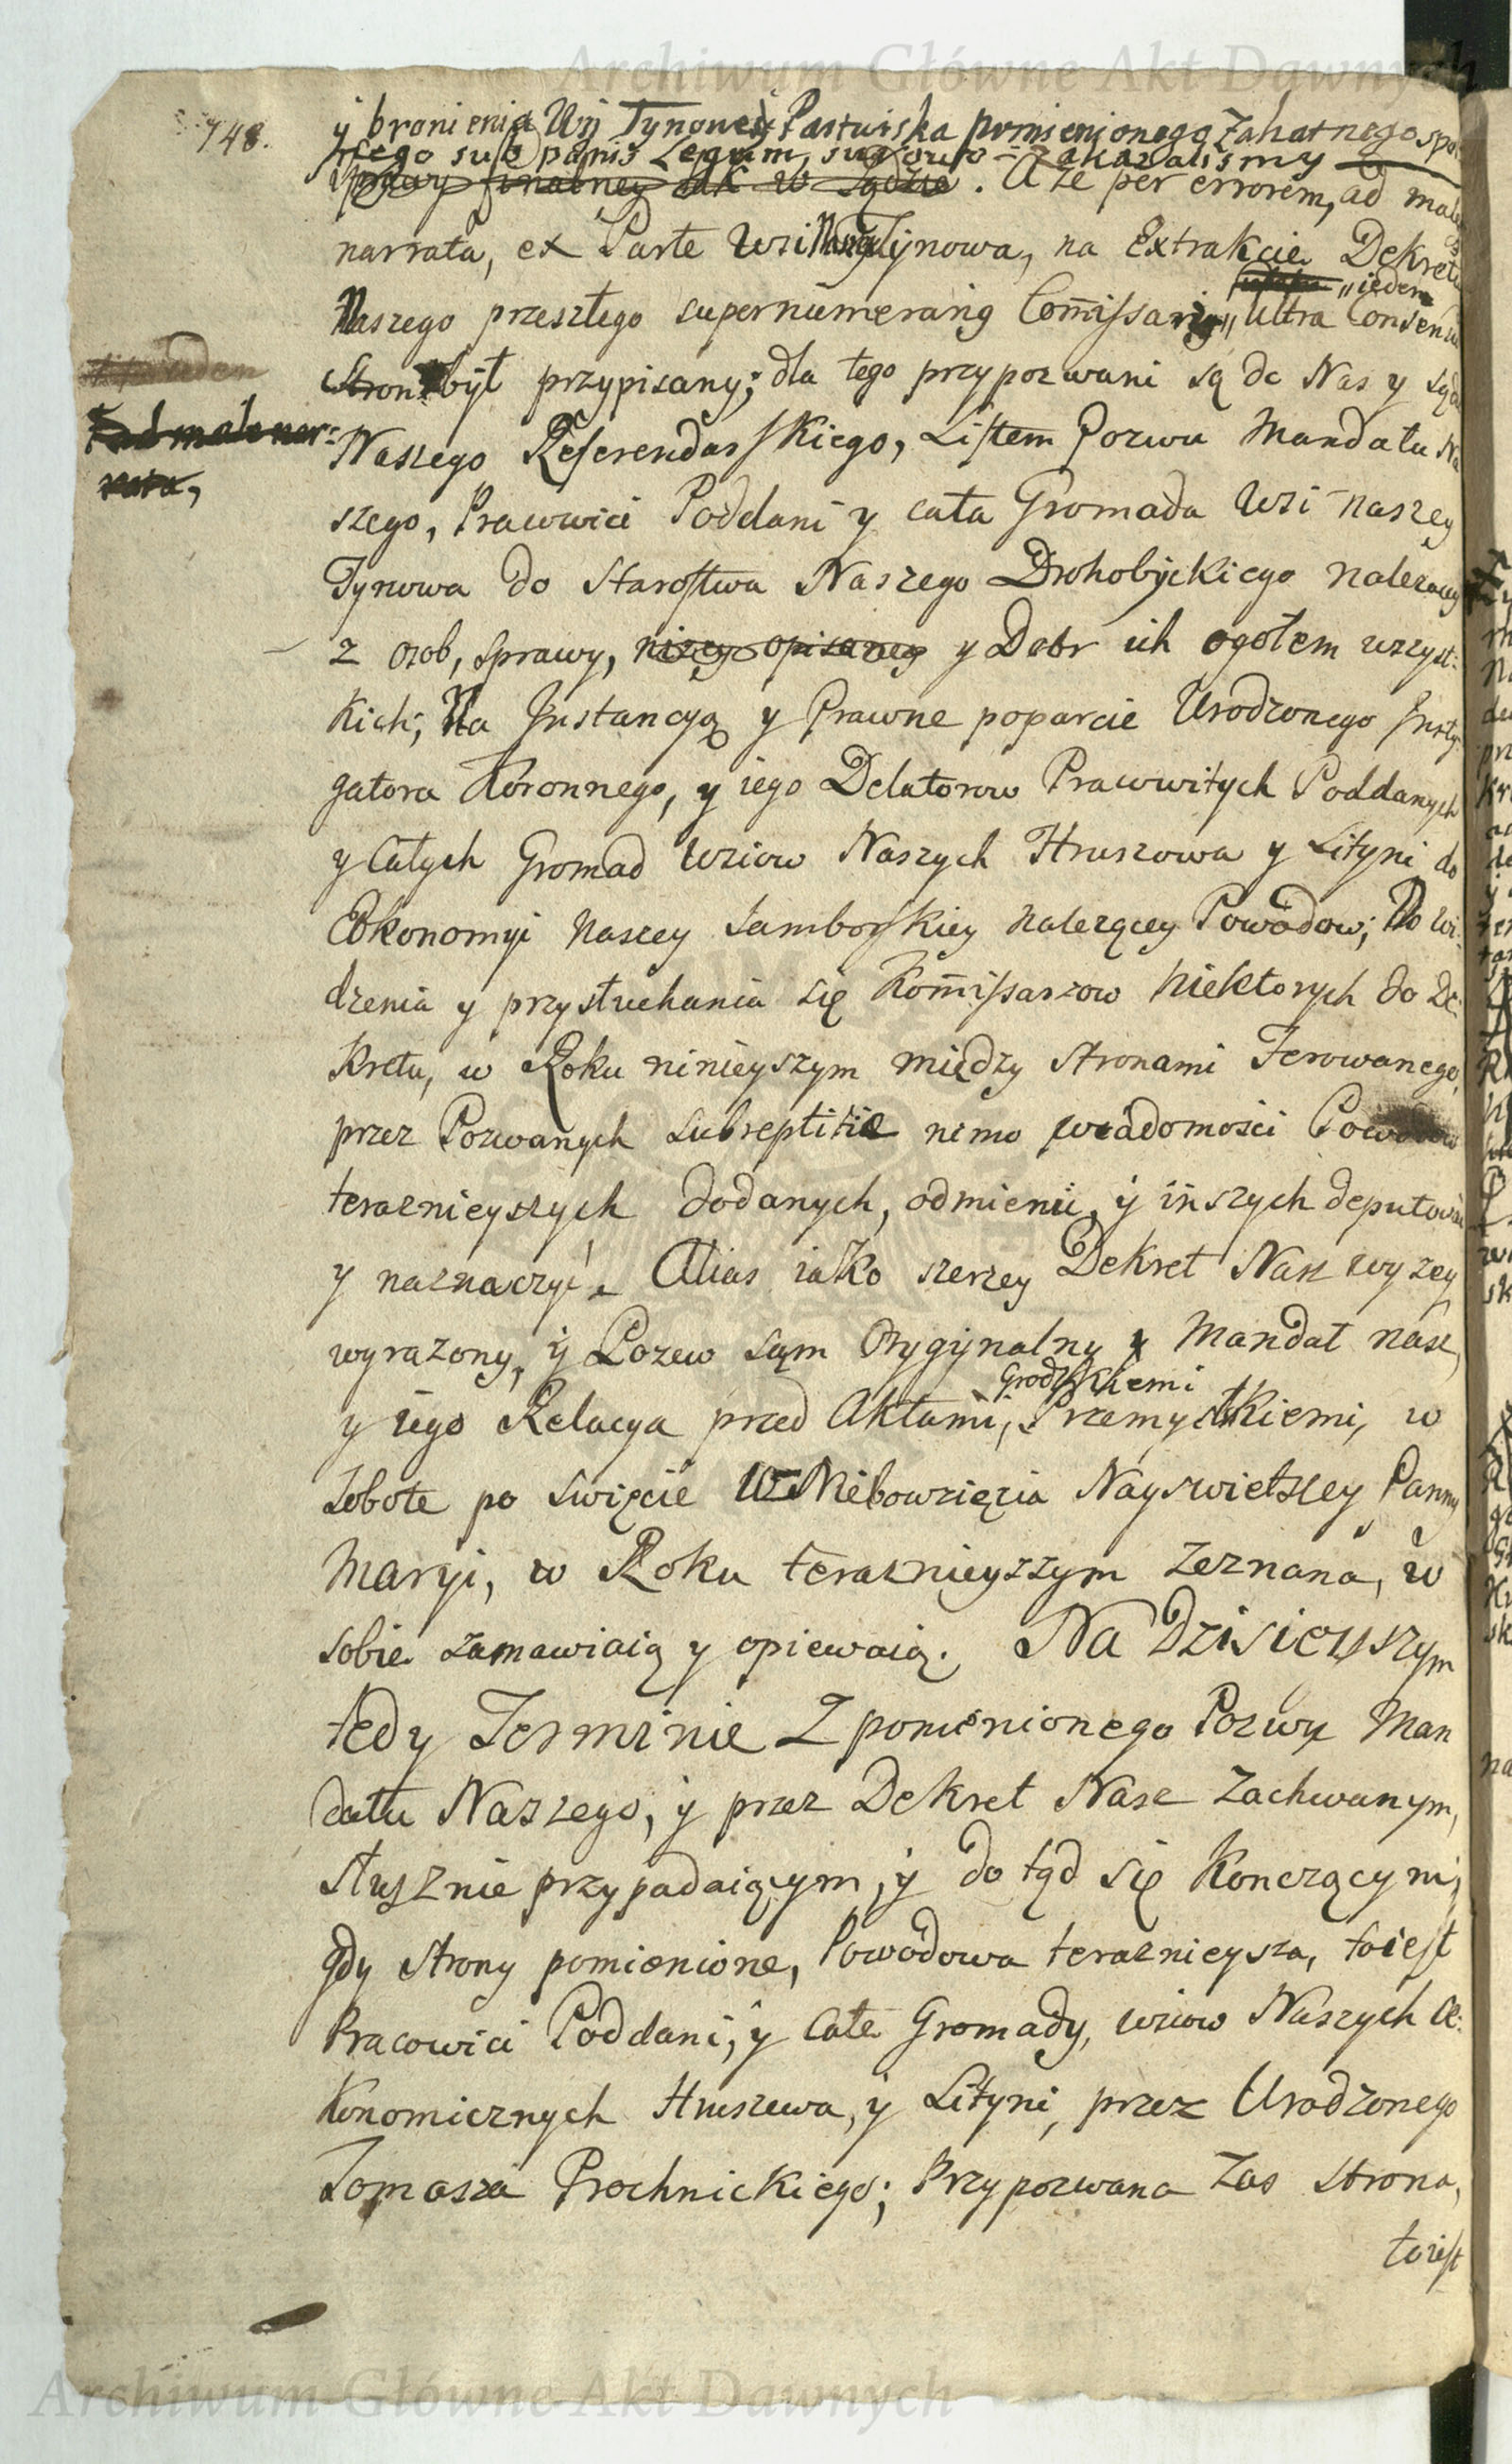 Archiwum Główne Akt Dawnych
748.
y bronienia Wsi Tynowey Pastwiska pomienionego Zahatnego
sub pænis Legum, surowo zakazalismy
sprawy finalney jak w Sądzie. A że per errorem, ad male
narrata, ex Parte Wsi Naszey Tynowa, na Extrakcie Dekretu
"ieden
Naszego przeszłego supernumerariy Com̃issarz" Ultra Consensum
Stron był przypisany; dla tego przypozwani są do Nas y sądu
ad male nar=
rata,
Naszego Referendarskiego, Listem Pozwu Mandatu Na
szego, Pracowici Poddani y cała Gromada Wsi naszey
Tynowa do Starostwa Naszego Drohobyckiego należący
z osob, sprawy, niżey opisaney y Dobr ich ogołem wszyst=
kich; Na Instancyą y Prawne poparcie Urodzonego Insty
gatora Koronnego, y iego Delatorow Pracowitych Poddanych
y Całych Gromad Wsiow Naszych Hruszowa y Lityni do
Ekonomyi Naszey Samborskiey należącey Powodow; Do wi=
dzenia y przysłuchania się Kom̃issarzow niektorych do De=
kretu, w Roku ninieyszym między stronami Ferowanego,
przez Pozwanych subreptitie nimo wiadomości Powodow
teraznieyszych dodanych, odmienić, y inszych deputować
y naznaczyć. Alias iako szerzey Dekret Nasz wyżey
wyrażony, y Pozew sąm Orygynalny y Mandat nasz,
Grodzkiemi
y iego Relacya przed Aktami, Przemyskiemi, w
Sobote po święcie W Niebowzięcia Nayswietszey Panny
Maryi, w Roku teraznieyszym zeznana, w
sobie zamawiaią y opiewaią. Na Dzisieyszym
tedy Terminie Z pomienionego Pozwu Man
datu Naszego, y przez Dekret Nasz zachwanym,
słusznie przypadaiącym, y do tąd się kończącym;
gdy strony pomienione, Powodowa teraznieysza, toiest
Pracowici Poddani, y całe Gromady, wsiow Naszych Æ=
konomicznych Hruszewa, y Lityni, przez Urodzonego
Tomasza Prochnickiego; Przypozwana zas strona,
toiest
Archiwum Główne Akt Dawnych